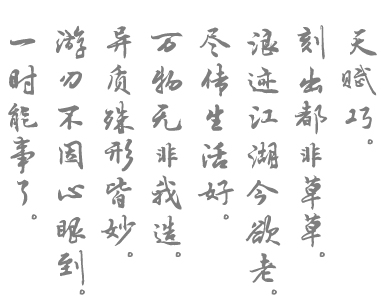 天赋巧。
刻出都非草草。
浪迹江湖今欲老。
尽传生活好。
万物无非我造。
异质殊形皆妙。
游刃不因心眼到。
一时能事了。